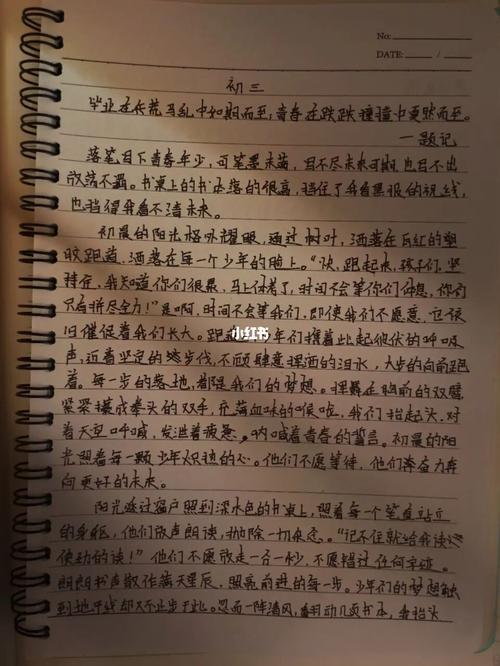 No:
DATE: / /
初三
毕业在兵荒马乱中如期而至,青春在跌跌撞撞中戛然而至。
—题记
落笔目下青春年少,可笔墨未满,目不尽未来可期,也目不出
故端不羁。书桌上的书,垒落的很高,挡住了我看黑板的视线,
也挡得我看不清未来。
初晨的阳光格外耀眼,通过树叶,洒落在瓦红的塑
胶跑道,洒落在每一个少年的脸上。“快,跑起来,孩子们,坚
持住,我知道你们很累,马上体考了,时间不会等你们休息,你们
只有拼尽全力!”是啊,时间不会等我们,即使我们不愿意,它依
旧催促着我们长大。跑道 年们撑着此起彼伏的呼吸
小红书
声,迈着坚定的步伐,不顾肆意挥洒的泪水,大步的向前跑
着。每一步的落地,都是我们的梦想。挥舞在胸前的双臂,
紧紧攥成拳头的双手,充满血味的喉咙,我们抬起头,对
着天空呼喊,发泄着疲惫,呐喊着青春的誓言。初晨的阳
光照着每一颗少年炽热的心。他们不愿等待,他们奋力奔
向更好的未来。
阳光透过窗户照到深木色的书桌上,照着每一个笔直站立
的身躯,他们放声朗读,抛除一切杂念。“记不住就给我读,
使劲的读!”他们不愿放走一分一秒,不愿错过任何字迹。
朗朗书声散作满天星辰,照亮前进的每一步。少年们的梦想触
到地平线却又不止步于此。忽而一阵清风,翻动几页书本,